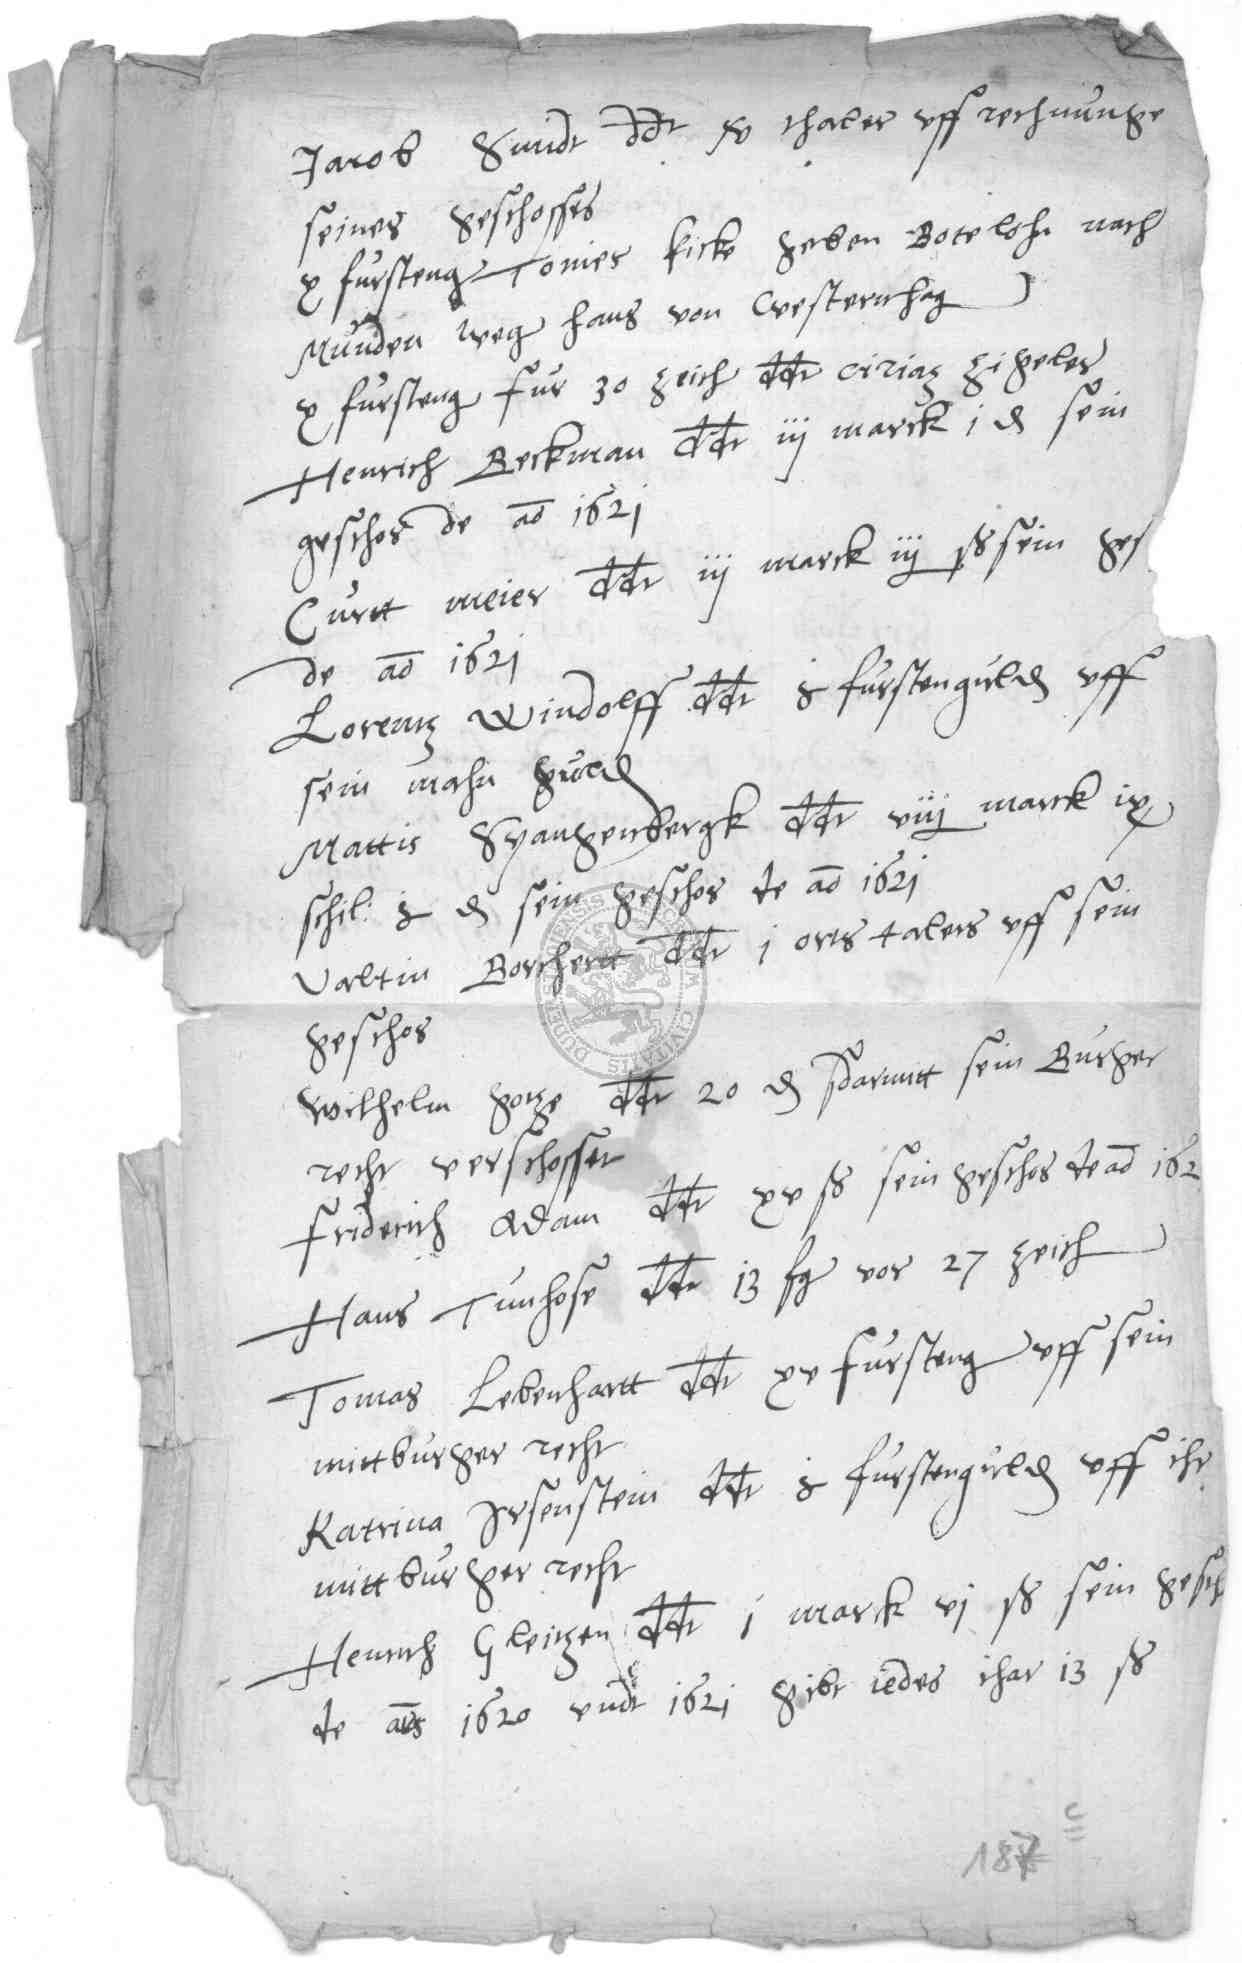 Jacob Hundt ddt iv thaler uff rechnunge
seines geschosses
x fursteng Tonies ficke geben Botelohn nach
Munden weg hans von Westernhag
x fursteng fur 30 zeich ddt ciriax zigeler
Henrich Beckman ddt iij marck i d sein
geschos de ao 1621
Curtt meier ddt iij marck iiij ß sein ges
de ao 1621
Lorentz Windolff ddt furstenguld uff
sein mahn
Mattis Spangenbergk ddt viij marck ix
schil: d sein geschos de ao 1621
Valtin Borchertt ddt i orts talers uff sein
geschos
Wilhelm gotze ddt 20 d darmitt sein Burger
recht verschosset
Friderich Adam ddt xv ß sein geschos de ao 162
Hans Tunhose ddt 13 fg vor 27 zeich
Tomas Lebenhartt ddt xv fursteng uff sein
mittburger recht
Katrina Irsenstein ddt furstenguld uff ihr
mittburger recht
Henrich Gleitzen ddt i marck vj ß sein gesch
de aos 1620 undt 1621 gibt iedes ihar 13 ß
187
c
DUDERSTADENSIS CIVITATIS